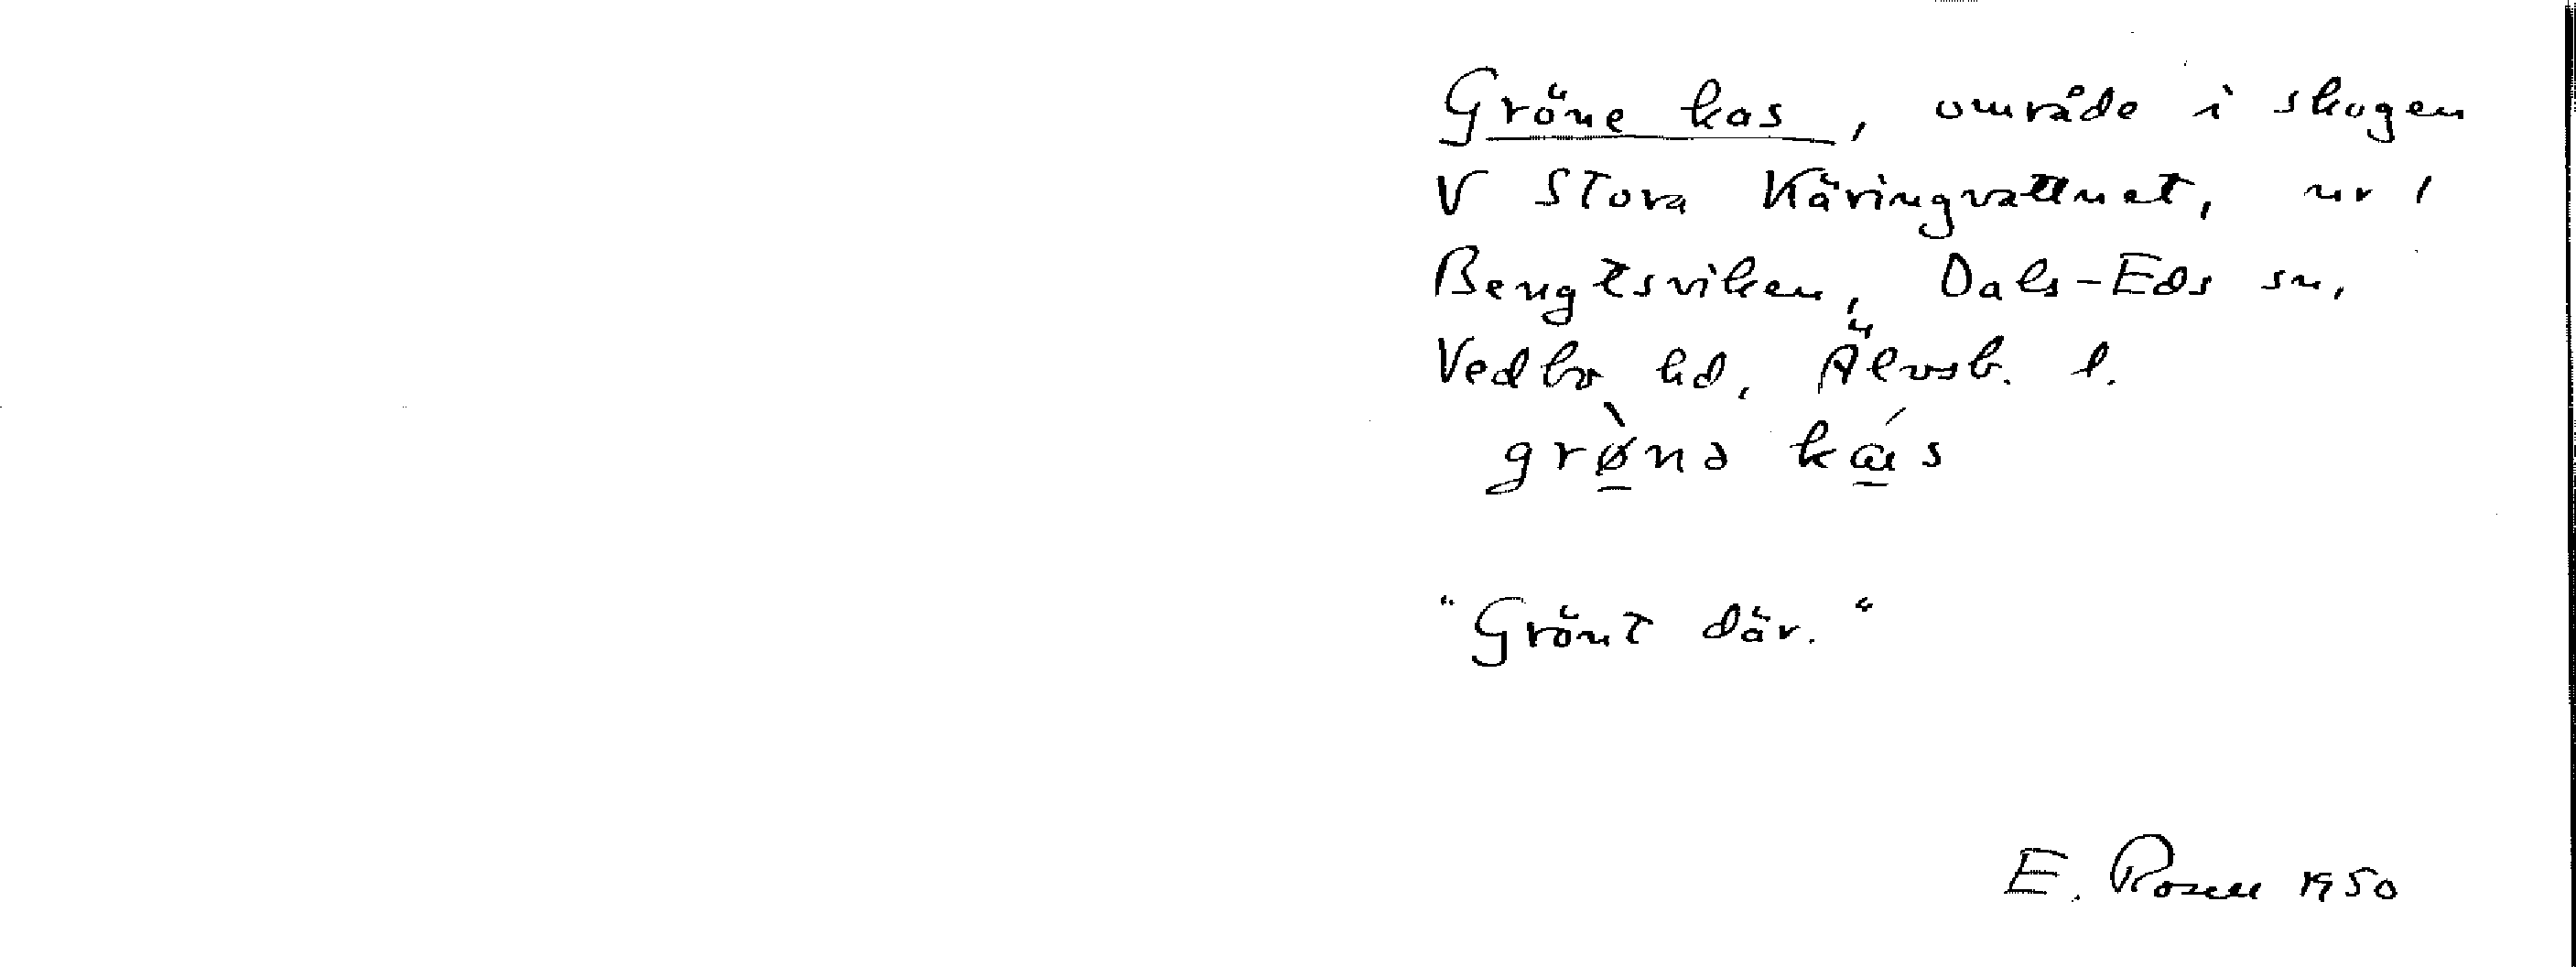 Gröne kas, område i skogen
V Stora Käringvattnet, nr 1
Bengtsviken, Dals-Eds sn,
Vedbo hd, Älvsb. l.
grø̠̀nə ká̠s
"Grönt där."
E. Rosell 1950